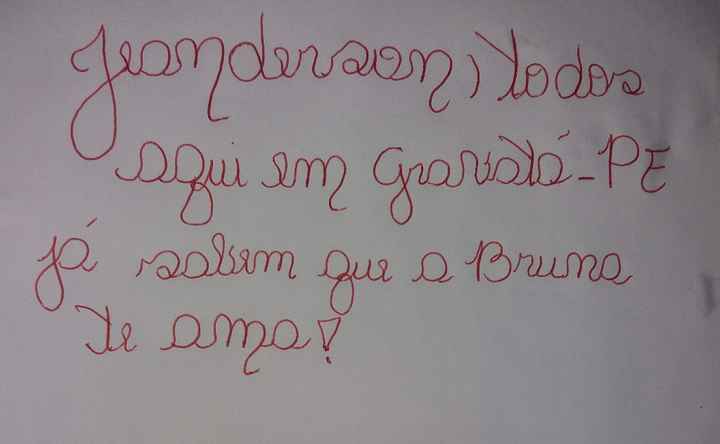 Jeanderson, todos
aqui em Gravatá-PE
já sabem que a Bruna
te ama!